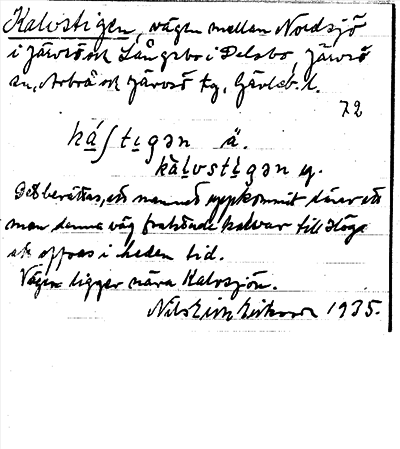 Kalvstigen, vägen mellan Nordsjö
i Järvsö sn och Långsbo i Delsbo, Järvsö
sn, Arbrå och Järvsö tg, Gävleb. l.
72
ká̱ʃtı̱gən ä.
kàḷvstı̱gən y.
Det berättas, att namnet uppkommit därav att
man denna väg fraktade kalvar till Höga
att offras i heden tid.
Vägen ligger nära Kalvsjön.
Nils Eriksson 1935.